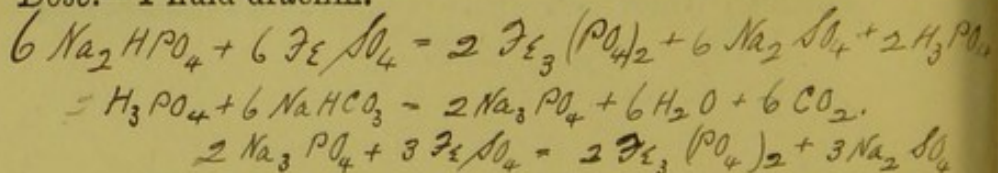 6 Na₂HPO₄ + 6 FeSO₄ = 2 Fe₃(PO₄)₂ + 6 Na₂SO₄ + 2 H₃PO₄
= H₃PO₄ + 6 NaHCO₃ = 2 Na₃PO₄ + 6 H₂O + 6 CO₂.
2 Na₃PO₄ + 3 FeSO₄ = 2 Fe₃(PO₄)₂ + 3 Na₂SO₄